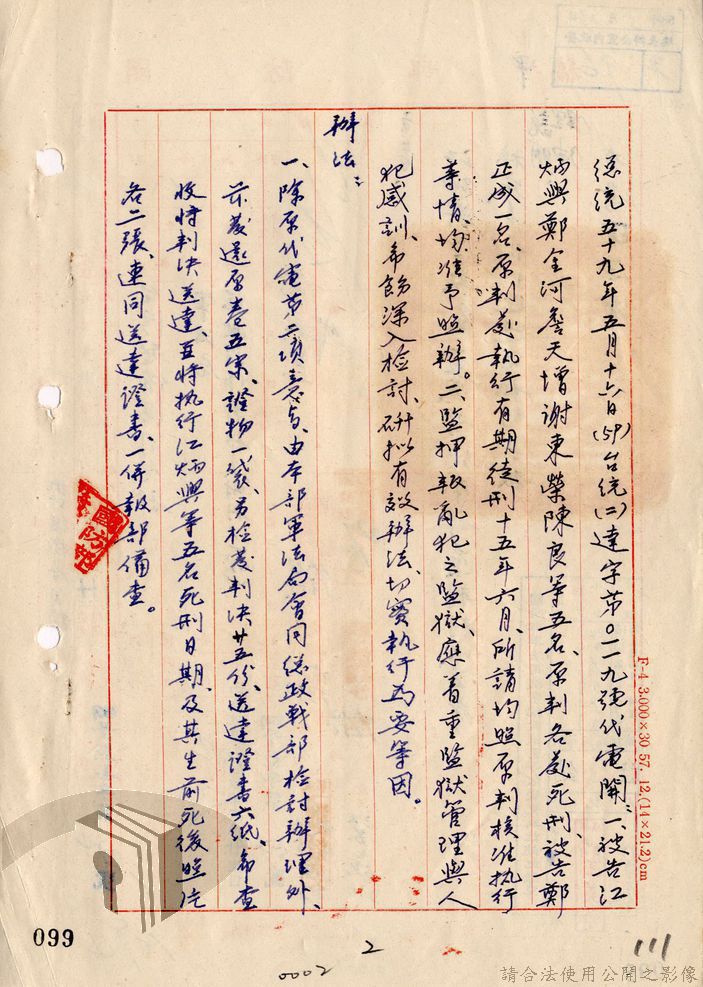 總統五十九年五月十六日(59)台統(二)達字第〇一一九號代電開：「一、被告江
炳興鄭金河詹天增謝東榮陳良等五名、原判各處死刑、被告鄭
正成一名、原判處執行有期徒刑十五年六月、所請均照原判核准執行
等情、均准予照辦。二、監押叛亂犯之監獄、應着重監獄管理與人
犯感訓、希飭深入檢討、研擬有效辦法、切實執行為要等因。
辦法：
一、除原代電第二項意旨、由本部軍法局會同總政戰部檢討辦理外、
茲發還原卷五宗、證物一袋、另檢發判決廿五份、送達證書六紙、希查
收將判決送達、互將執行江炳興等五名死刑日期、及其生前死後照片
各二張、連同送達證書、一併報部備查。
國防部
F-4 3.000×30 57. 12.(14×21.2)cm
099
2
0002
111
請合法使用公開之影像